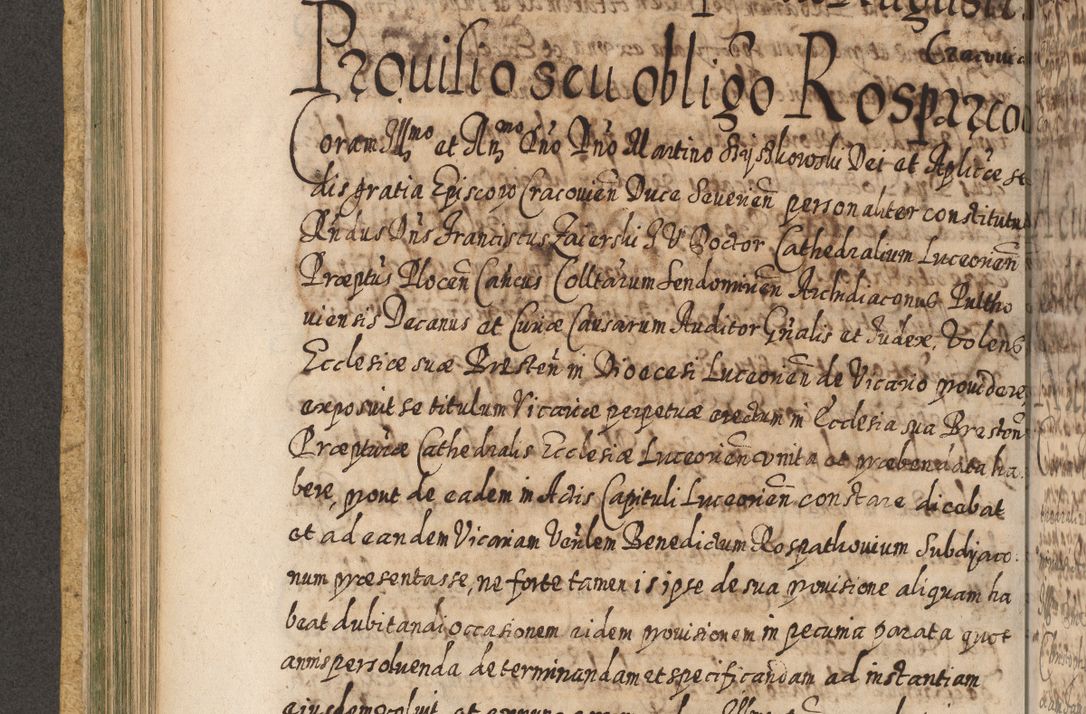 August
Cracovia
Provisio seu obligo Rospatco
Coram Illmo et Rn̄mo Dn̄o Dn̄o Martino Szyszkowski Dei et Aplicæ se
dis gratia Episcopo Cracovien̄ Duce Severien̄ personaliter constitutus
Rn̄dus Dn̄s Franciscus Zaierski I V Doctor Cathedralium Luceorien̄
Præptūs Plocen̄ Cancūs Colltārum Sendomirien̄ Archidiaconus Pulto
viensis Decanus et Curiæ Causarum Auditor Gn̄alis et Judex, Volens
Ecclesiæ suæ Bresten̄ in Diœcesi Luceorien̄ de Vicario providere
exposuit se titulum Vicariæ perpetuæ erectum in Ecclesia sua Bresten̄
Præpturæ Cathedralis Ecclesiæ Luceorien̄ unita et præbendata ha
bere, prout de eadem in Actis Capituli Luceorien̄ constare dicebat
et ad eandem Vicariam Ven̄lem Benedictum Rospathovium Subdiaco
num præsentasse, ne forte tamen is ipse de sua provisione aliquam ha
beat dubitandi occasionem eidem provisionem in pecunia parata quot
annis persolvenda determinandam et specificandam ad instantiam